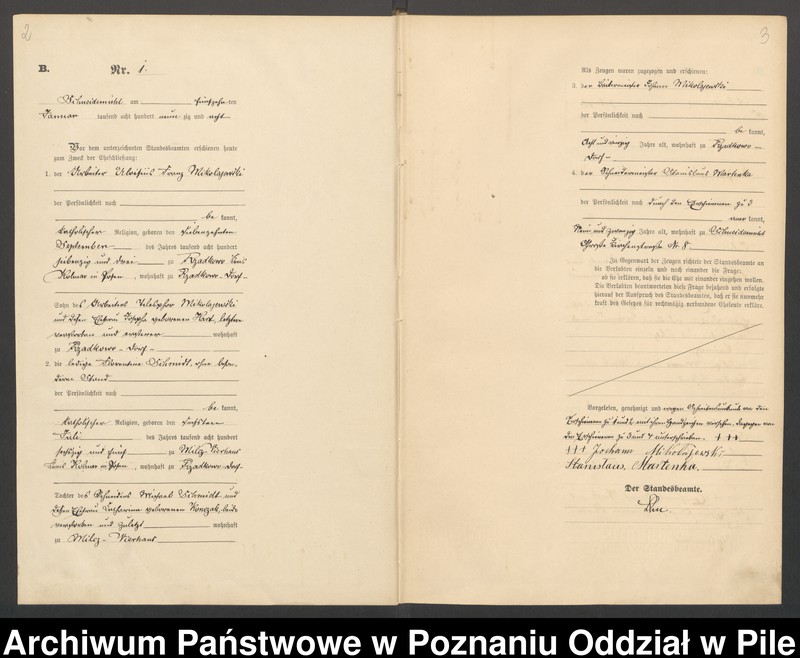 2
B. Nr. 1.
Schneidemühl am fünfzehnten
Januar tausend acht hundert neunzig und acht
Vor dem unterzeichneten Standesbeamten erschienen heute
zum Zweck der Eheschließung:
1. der Arbeiter Franz Mikolajewski
der Persönlichkeit nach
bekannt,
katholischer Religion, geboren den siebenzehnten
September des Jahres tausend acht hundert
siebenzig und drei zu Rzadkowo Kreis
Kolmar in Posen, wohnhaft zu Rzadkowo-Dorf-
Sohn des Arbeiters Telesphor Mikolajewski
und dessen Ehefrau Josepha geborenen letztere
verstorben und ersterer wohnhaft
zu Rzadkowo-Dorf-
2. die ledige Florentine Schmidt, ohne beson-
deren Stand
der Persönlichkeit nach
bekannt,
katholischer Religion, geboren den sechsten
Juli des Jahres tausend acht hundert
sechszig und fünf zu Milcz-Vierhaus
Kreis Kolmar in Posen, wohnhaft zu Rzadkowo-Dorf-
Tochter des Schmidt und
dessen Ehefrau Catharina geborenen beide
verstorben und zuletzt wohnhaft
zu Milcz-Vierhaus
3
Als Zeugen waren zugezogen und erschienen:
3. der Johann Mikolajewski
der Persönlichkeit nach
bekannt,
Jahre alt, wohnhaft zu Rzadkowo-
Dorf-
4. der Schneidermeister Stanislaus Martenka
der Persönlichkeit nach durch den Erschienenen zu 3
anerkannt,
neun und zwanzig Jahre alt, wohnhaft zu Schneidemühl
Kirchenstraße Nr. 8.
In Gegenwart der Zeugen richtete der Standesbeamte an
die Verlobten einzeln und nach einander die Frage:
ob sie erklären, daß sie die Ehe mit einander eingehen wollen.
Die Verlobten beantworteten diese Frage bejahend und erfolgte
hierauf der Ausspruch des Standesbeamten, daß er sie nunmehr
kraft des Gesetzes für rechtmäßig verbundene Eheleute erkläre.
Vorgelesen, genehmigt und wegen Schreibensunkunde von den
Erschienenen zu 1 und 2 mit ihren Handzeichen versehen, dagegen von
den Erschienenen zu 3 und 4 unterschrieben. +++
+++ Johann Mikołajewski.
Stanislaus Martenka.
Der Standesbeamte.
Archiwum Państwowe w Poznaniu Oddział w Pile